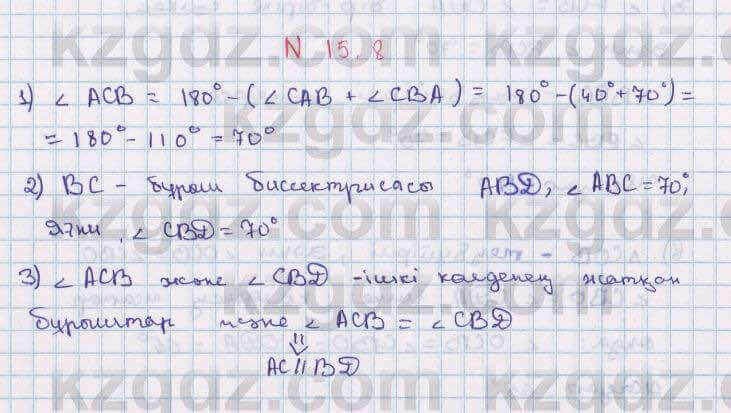 N 15.8
1) ∠ ACB = 180° - (∠ CAB + ∠ CBA) = 180° - (40° + 70°) =
= 180° - 110° = 70°
2) BC - бұрыш биссектрисасы ABD, ∠ ABC = 70°,
яғни, ∠ CBD = 70°
3) ∠ ACB және ∠ CBD - ішкі көлденең жатқан
бұрыштар және ∠ ACB = ∠ CBD
⇓
AC || BD
kzgdz.com